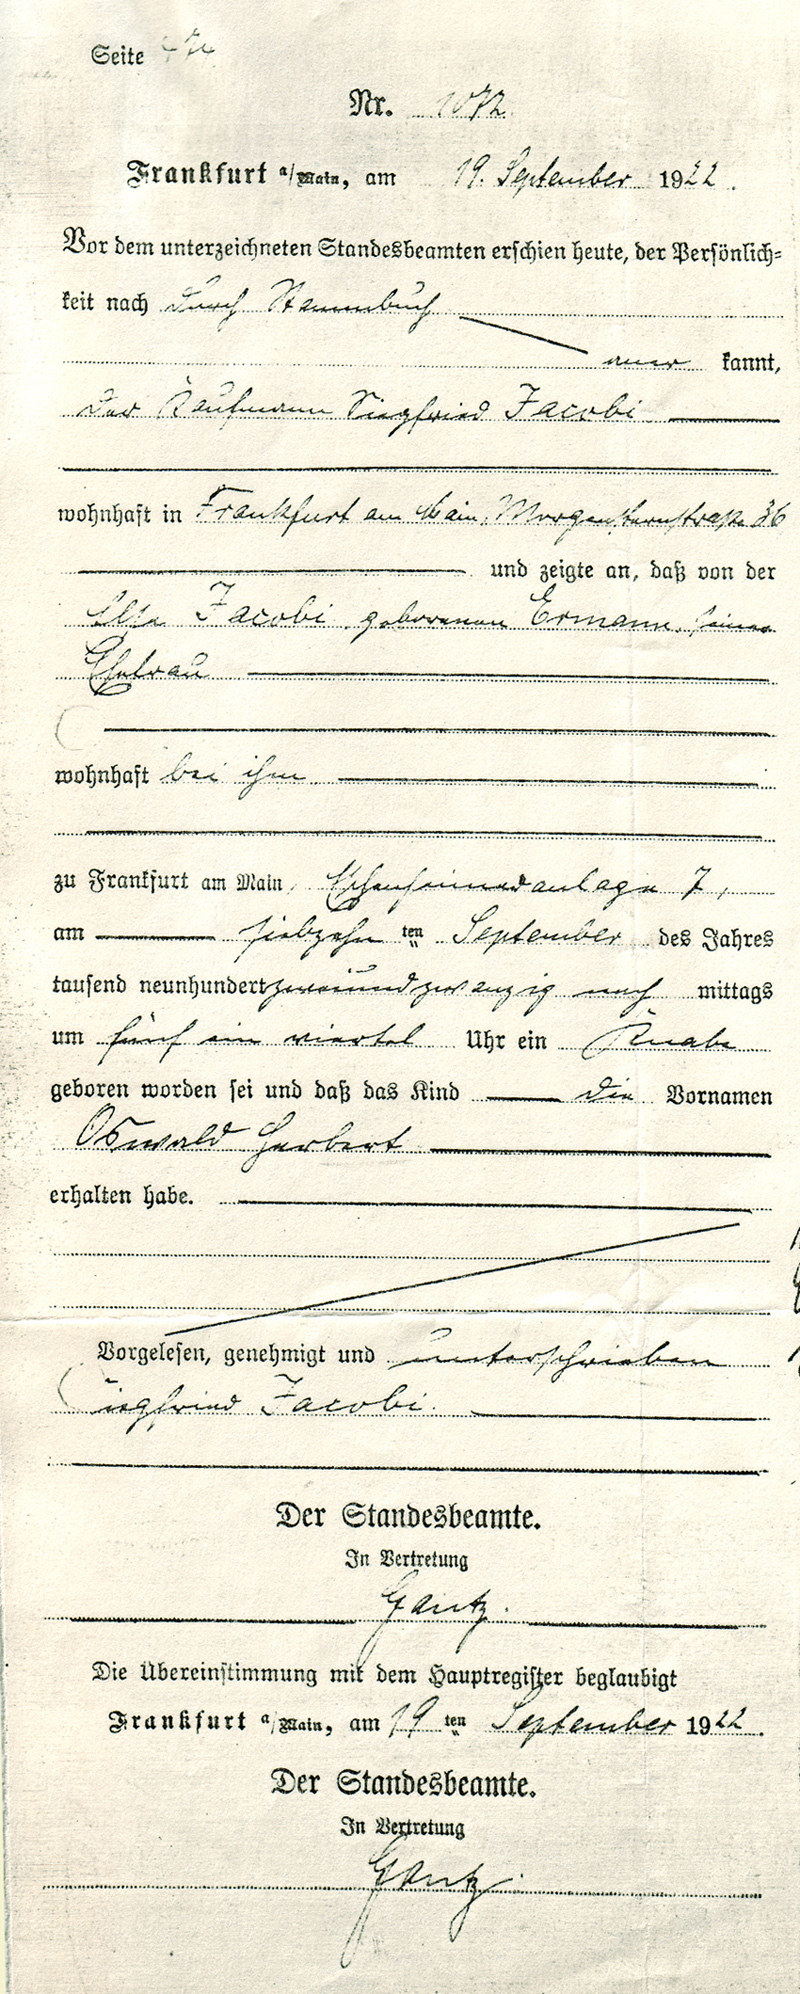 Seite
Nr. 1072
Frankfurt a/Main, am 19. September 1922.
Vor dem unterzeichneten Standesbeamten erschien heute, der Persönlich=
keit nach durch Stammbuch
aner kannt,
der Kaufmann Siegfried Jacobi
wohnhaft in Frankfurt am Main, Morgensternstraße 36
und zeigte an, daß von der
Else Jacobi geborenen Ermann, seiner
Ehefrau
wohnhaft bei ihm
zu Frankfurt am Main, Eschenheimeranlage 7,
am siebzehn ten September des Jahres
tausend neunhundert zweiundzwanzig nach mittags
um fünf ein viertel Uhr ein Knabe
geboren worden sei und daß das Kind die Vornamen
Oswald Herbert
erhalten habe.
Vorgelesen, genehmigt und unterschrieben
Siegfried Jacobi.
Der Standesbeamte.
In Vertretung
Gantz.
Die Übereinstimmung mit dem Hauptregister beglaubigt
Frankfurt a/Main, am 19 ten September 1922.
Der Standesbeamte.
In Vertretung
Gantz.